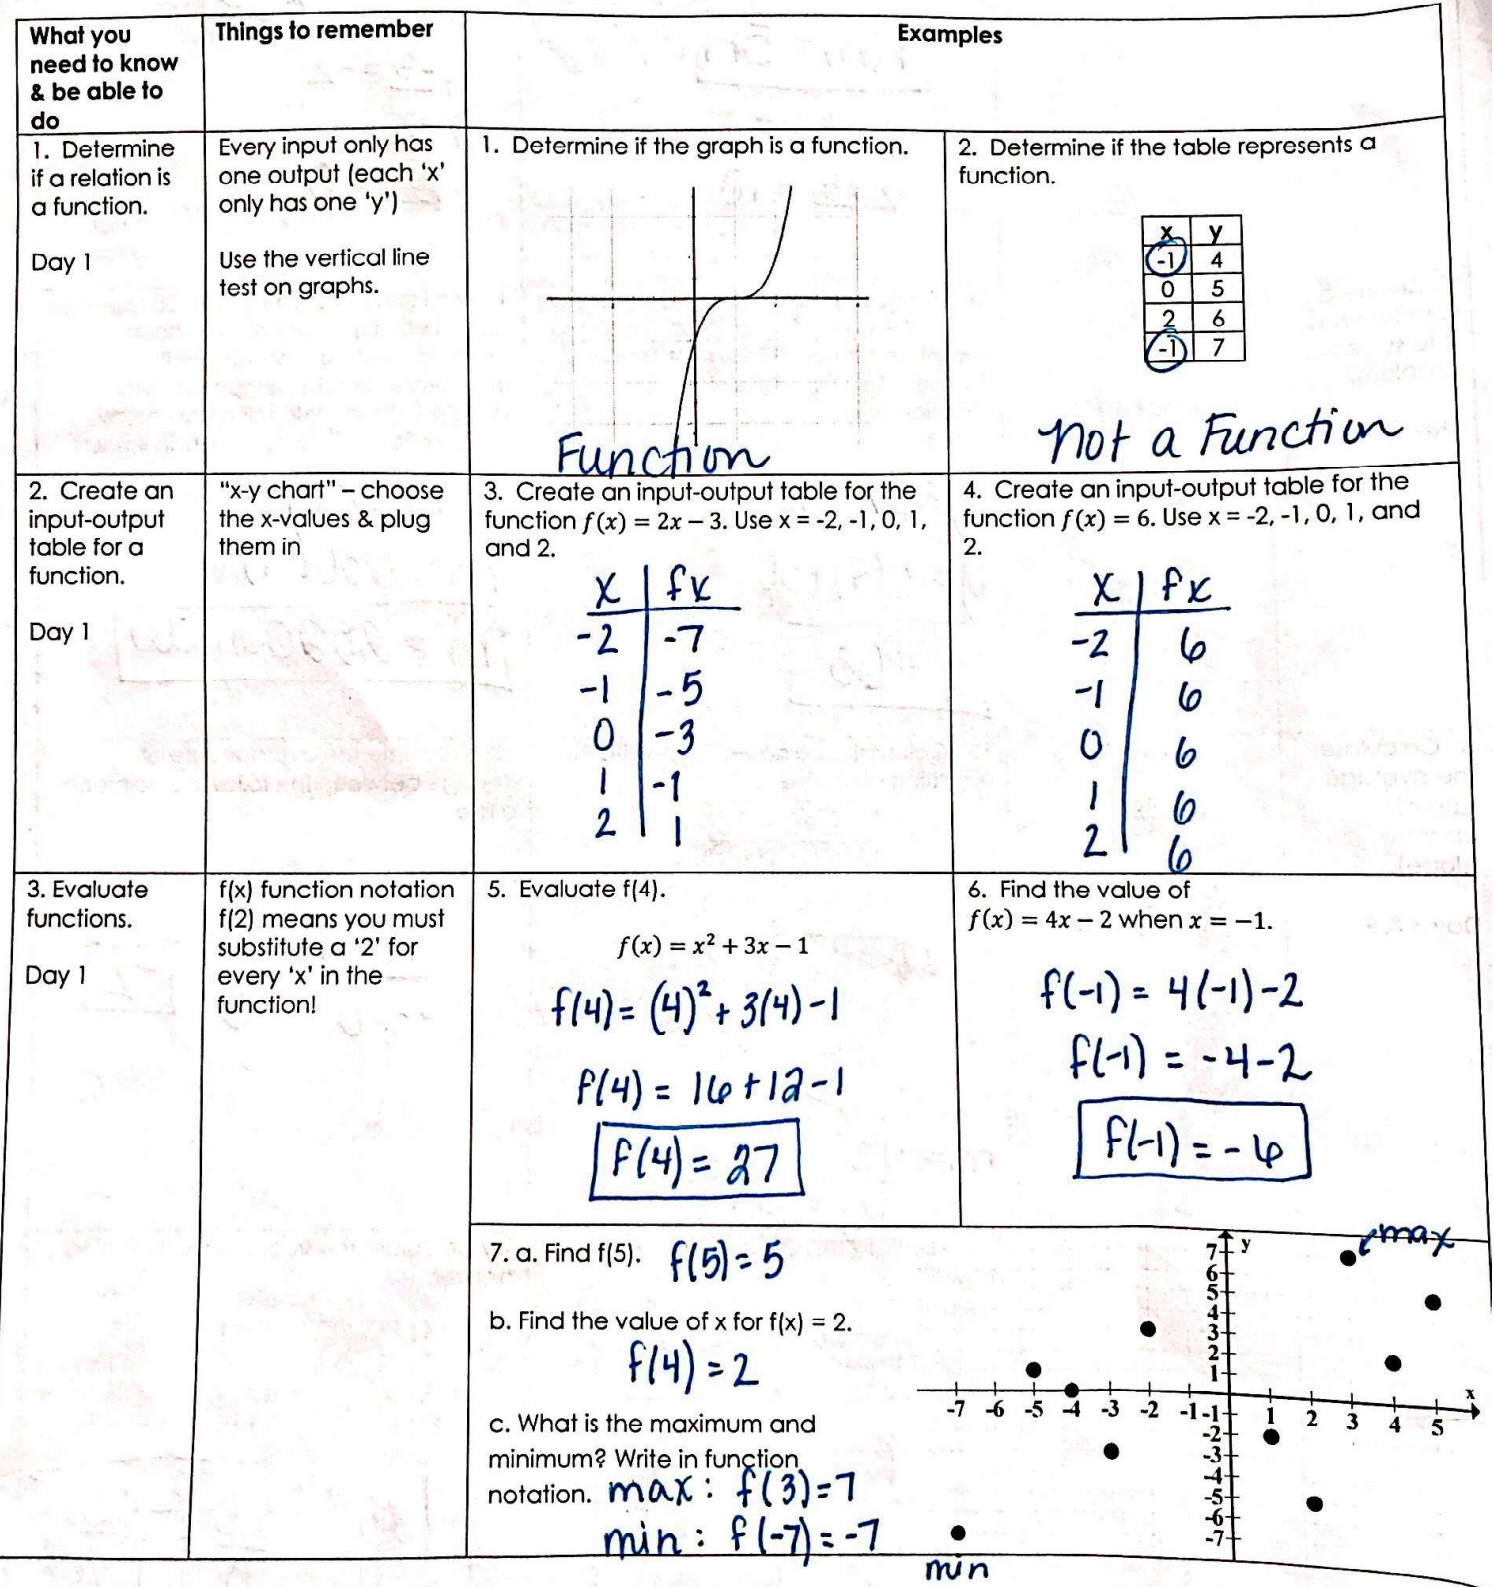 What you
need to know
& be able to
do
Things to remember
Examples
1. Determine
if a relation is
a function.
Day 1
Every input only has
one output (each 'x'
only has one 'y')
Use the vertical line
test on graphs.
1. Determine if the graph is a function.
Function
2. Determine if the table represents a
function.
x y
-1 4
0 5
2 6
-1 7
Not a Function
2. Create an
input-output
table for a
function.
Day 1
"x-y chart" – choose
the x-values & plug
them in
3. Create an input-output table for the
function f(x) = 2x − 3. Use x = -2, -1, 0, 1,
and 2.
x fx
-2 -7
-1 -5
0 -3
1 -1
2 1
4. Create an input-output table for the
function f(x) = 6. Use x = -2, -1, 0, 1, and
2.
x fx
-2 6
-1 6
0 6
1 6
2 6
3. Evaluate
functions.
Day 1
f(x) function notation
f(2) means you must
substitute a '2' for
every 'x' in the
function!
5. Evaluate f(4).
f(x) = x² + 3x − 1
f(4) = (4)² + 3(4) - 1
f(4) = 16 + 12 - 1
f(4) = 27
6. Find the value of
f(x) = 4x − 2 when x = −1.
f(-1) = 4(-1) - 2
f(-1) = -4 - 2
f(-1) = -6
7. a. Find f(5). f(5) = 5
b. Find the value of x for f(x) = 2.
f(4) = 2
c. What is the maximum and
minimum? Write in function
notation. max: f(3) = 7
min: f(-7) = -7
max
y
7
6
5
4
3
2
1
x
-7 -6 -5 -4 -3 -2 -1 1 2 3 4 5
-1
-2
-3
-4
-5
-6
-7
min